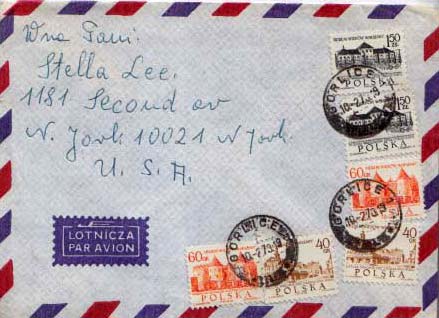 Wna Pani:
Stella Lee.
1181 Second av
N. York 10021 N York
U. S. A.
LOTNICZA
PAR AVION
1.50 ZŁ
POLSKA
GORLICE 1
10-2.73-19
1.50
POLSKA
60 GR
POLSKA
GORLICE 1
10-2.73-19
40 GR
POLSKA
GORLICE 1
10-2.73-19
60 GR
POLSKA
40 GR
POLSKA